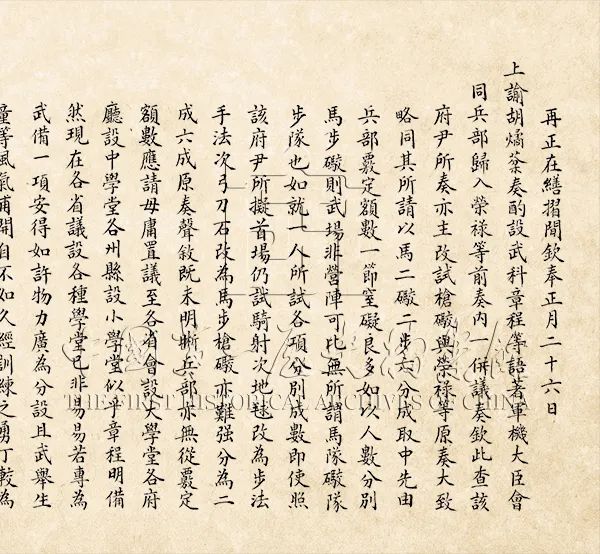 再正在繕摺間欽奉正月二十六日
上諭胡燏棻奏酌設武科章程等語著軍機大臣會
同兵部歸入榮祿等前奏內一併議奏欽此查該
府尹所奏亦主改試槍礮與榮祿等原奏大致
略同其所請以馬二礮二步六分成取中先由
兵部覈定額數一節窒礙良多如以人數分別
馬步礮則武場非營陣可比無所謂馬隊礮隊
步隊也如就一人所試各項分別成數即使照
該府尹所擬首場仍試騎射次地毬改為步法
手法次弓刀石改為馬步槍礮亦難強分為二
成六成原奏聲敘既未明晰兵部亦無從覈定
額數應請毋庸置議至各省會設大學堂各府
廳設中學堂各州縣設小學堂似乎章程明備
然現在各省議設各種學堂已非易易若專為
武備一項安得如許物力廣為分設且武舉生
童等風氣甫開自不如久經訓練之勇丁較為
中國第一歷史檔案館
THE FIRST HISTORICAL ARCHIVES OF CHINA